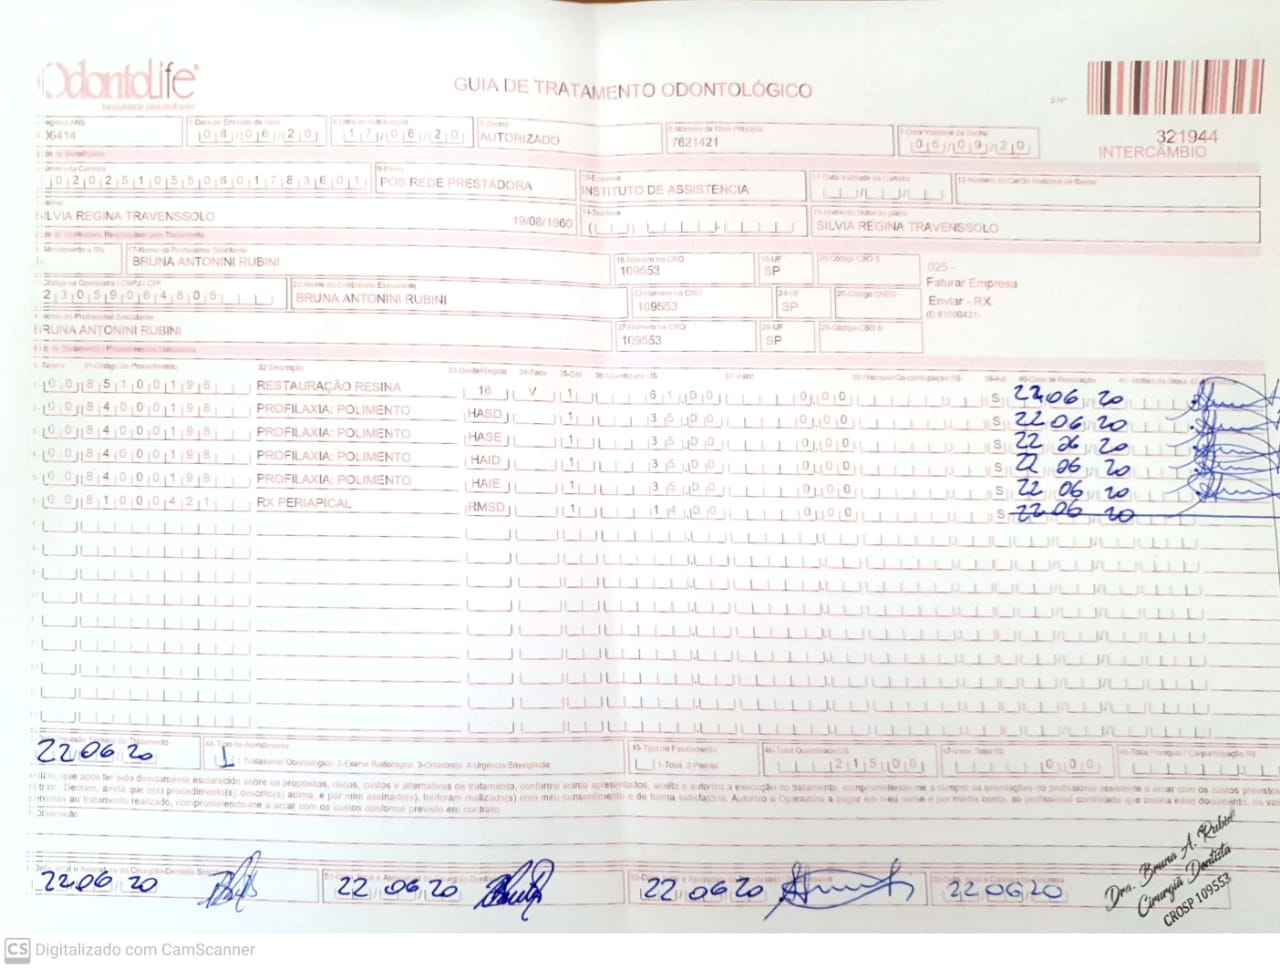 OdontoLife
tranquilidade para você sorrir
GUIA DE TRATAMENTO ODONTOLÓGICO
2-Nº
321944
INTERCÂMBIO
06414
3-Data de Emissão da Guia
08/06/20
4-Data de Autorização
17/06/20
5-Senha
AUTORIZADO
6-Número da Guia Principal
7621421
Data Validade da Senha
06/09/20
02025105506017836 01
9-Plano
POS REDE PRESTADORA
10-Empresa
INSTITUTO DE ASSISTENCIA
11-Data Validade da Carteira
12-Número do Cartão Nacional de Saúde
SILVIA REGINA TRAVENSSOLO
19/08/1960
14-Telefone
15-Nome do titular do plano
SILVIA REGINA TRAVENSSOLO
Atendimento a RN
17-Nome do Profissional Solicitante
BRUNA ANTONINI RUBINI
18-Número no CRO
109553
19-UF
SP
20-Código CBO S
025-
Faturar Empresa
Enviar - RX
(I) 81000421-
Código na Operadora / CNPJ / CPF
23059064806
22-Nome do Contratado Executante
BRUNA ANTONINI RUBINI
23-Número no CRO
109553
24-UF
SP
25-Código CNES
Nome do Profissional Executante
BRUNA ANTONINI RUBINI
27-Número no CRO
109553
28-UF
SP
29-Código CBO S
31-Código do Procedimento 32-Descrição 33-Dente/Região 34-Face 35-Qtd 36-Quantidade US 37-Valor 38-Franquia/Co-participação R$ 39-Aut
00 85100196 RESTAURAÇÃO RESINA 16 V 1 61,00 0,00 S 22 06 20
00 84000198 PROFILAXIA: POLIMENTO HASD 1 35,00 0,00 S 22 06 20
00 84000198 PROFILAXIA: POLIMENTO HASE 1 35,00 0,00 S 22 06 20
00 84000198 PROFILAXIA: POLIMENTO HAID 1 35,00 0,00 S 22 06 20
00 84000198 PROFILAXIA: POLIMENTO HAIE 1 35,00 0,00 S 22 06 20
00 81000421 RX PERIAPICAL RMSD 1 14,00 0,00 S 22 06 20
22 06 20
44-Tipo de Atendimento
1 1-Tratamento Odontológico 2-Exame Radiológico 3-Ortodontia 4-Urgência/Emergência
45-Tipo de Faturamento
1-Total 2-Parcial
46-Total Quantidade US
215,00
47-Valor Total R$
0,00
48-Total Franquia / Co-participação R$
que após ter sido devidamente esclarecido sobre os propósitos, riscos, custos e alternativas de tratamento, conforme acima apresentados, aceito e autorizo a execução do tratamento, comprometendo-me a cumprir as orientações do profissional assistente e arcar com os custos previstos
Declaro, ainda que o(s) procedimento(s) descrito(s) acima, e por mim assinado(s), foi/foram realizado(s) com meu consentimento e de forma satisfatória. Autorizo a Operadora a pagar em meu nome e por minha conta, ao profissional contratado que assina esse documento, os
ao tratamento realizado, comprometendo-me a arcar com os custos conforme previsto em contrato.
Observação
22 06 20 22 06 20 22 06 20 22 06 20
Dra. Bruna A. Rubini
Cirurgiã Dentista
CROSP 109553
CS Digitalizado com CamScanner